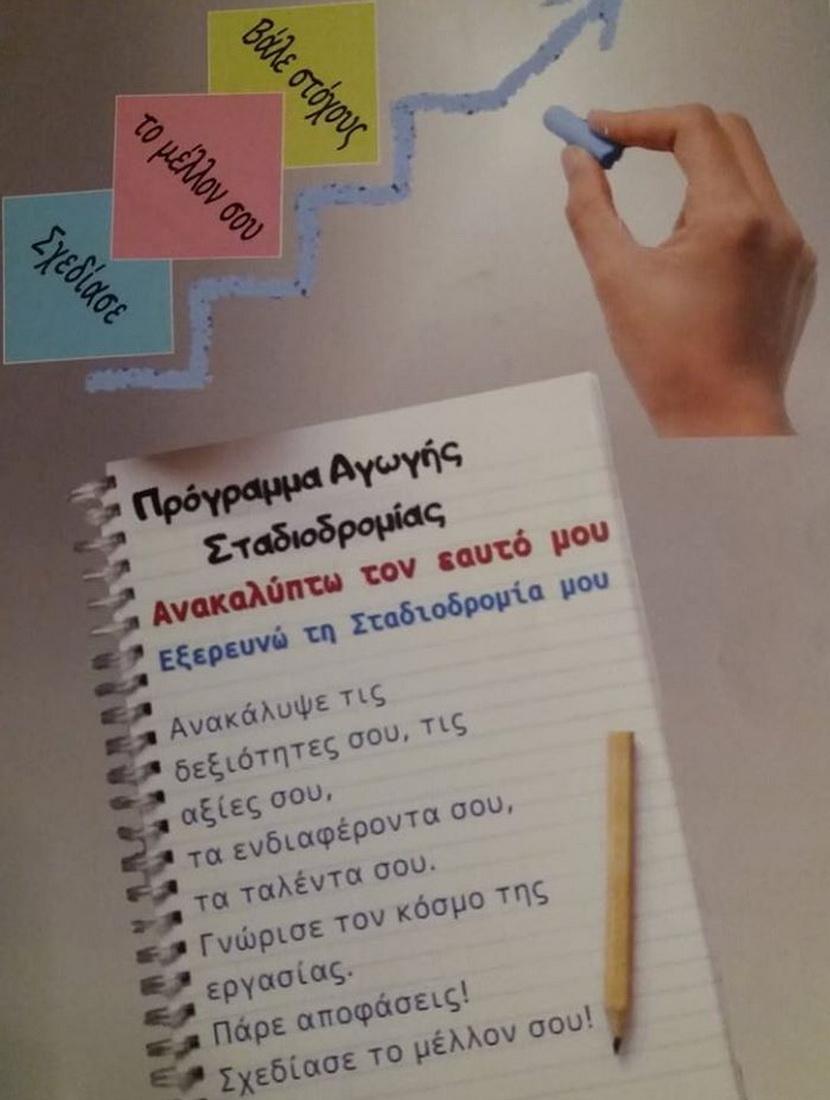 Βάλε στόχους
το μέλλον σου
Σχεδίασε
Πρόγραμμα Αγωγής
Σταδιοδρομίας
Ανακαλύπτω τον εαυτό μου
Εξερευνώ τη Σταδιοδρομία μου
Ανακάλυψε τις
δεξιότητες σου, τις
αξίες σου,
τα ενδιαφέροντα σου,
τα ταλέντα σου.
Γνώρισε τον κόσμο της
εργασίας.
Πάρε αποφάσεις!
Σχεδίασε το μέλλον σου!